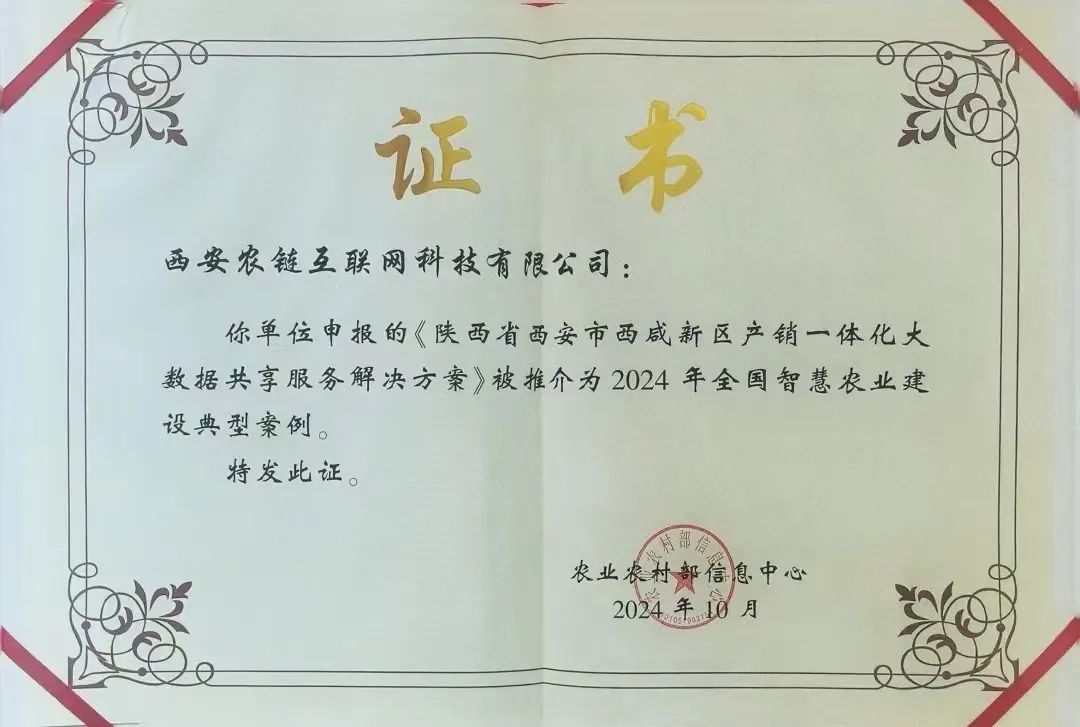 证 书
西安农链互联网科技有限公司：
你单位申报的《陕西省西安市西咸新区产销一体化大
数据共享服务解决方案》被推介为 2024 年全国智慧农业建
设典型案例。
特发此证。
农业农村部信息中心
2024 年 10 月
农业农村部信息中心